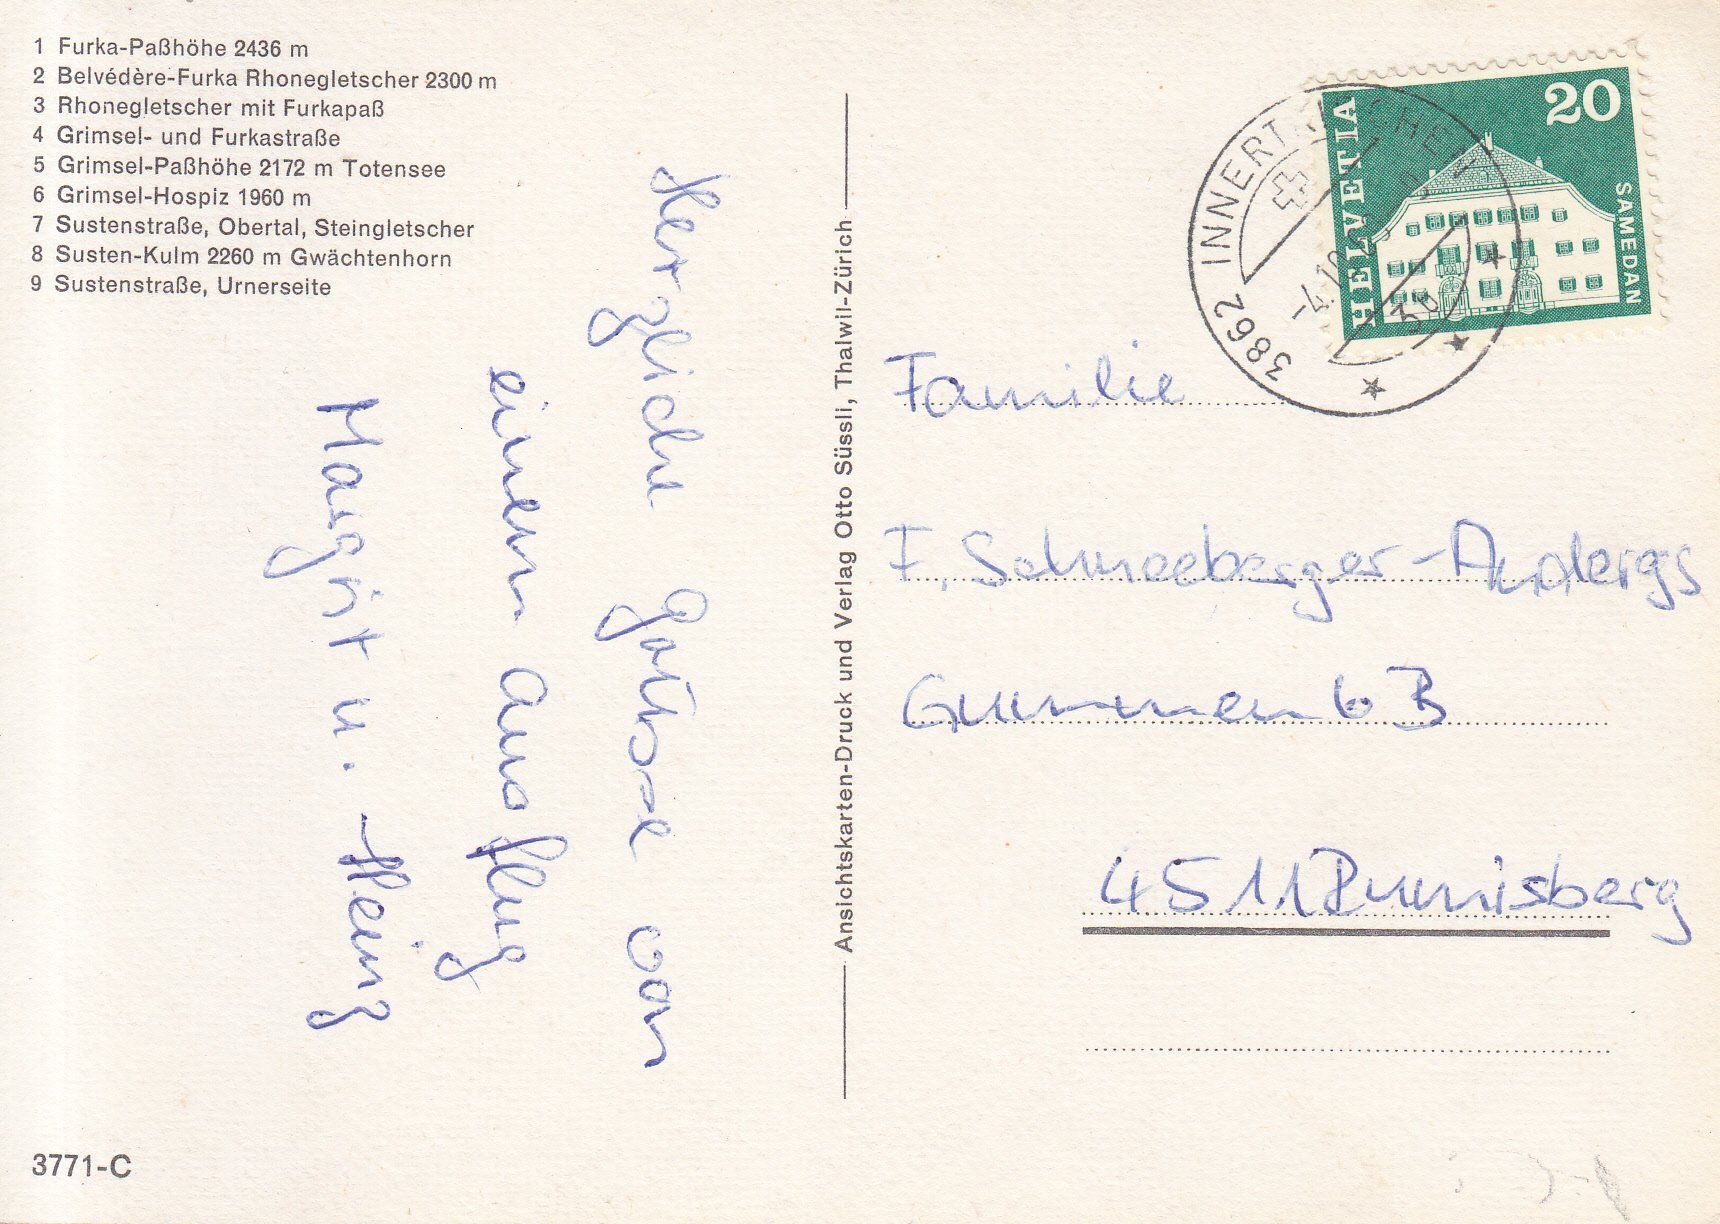 1 Furka-Paßhöhe 2436 m
2 Belvédère-Furka Rhonegletscher 2300 m
3 Rhonegletscher mit Furkapaß
4 Grimsel- und Furkastraße
5 Grimsel-Paßhöhe 2172 m Totensee
6 Grimsel-Hospiz 1960 m
7 Sustenstraße, Obertal, Steingletscher
8 Susten-Kulm 2260 m Gwächtenhorn
9 Sustenstraße, Urnerseite
Herzliche Grüsse von
einem Ausflug
Margrit u. Heinz
3771-C
Ansichtskarten-Druck und Verlag Otto Süssli, Thalwil-Zürich
HELVETIA
20
SAMEDAN
3862 INNERTKIRCHEN
Familie
F. Schneeberger-Anderegg
Gummen 6 B
4511 Rumisberg